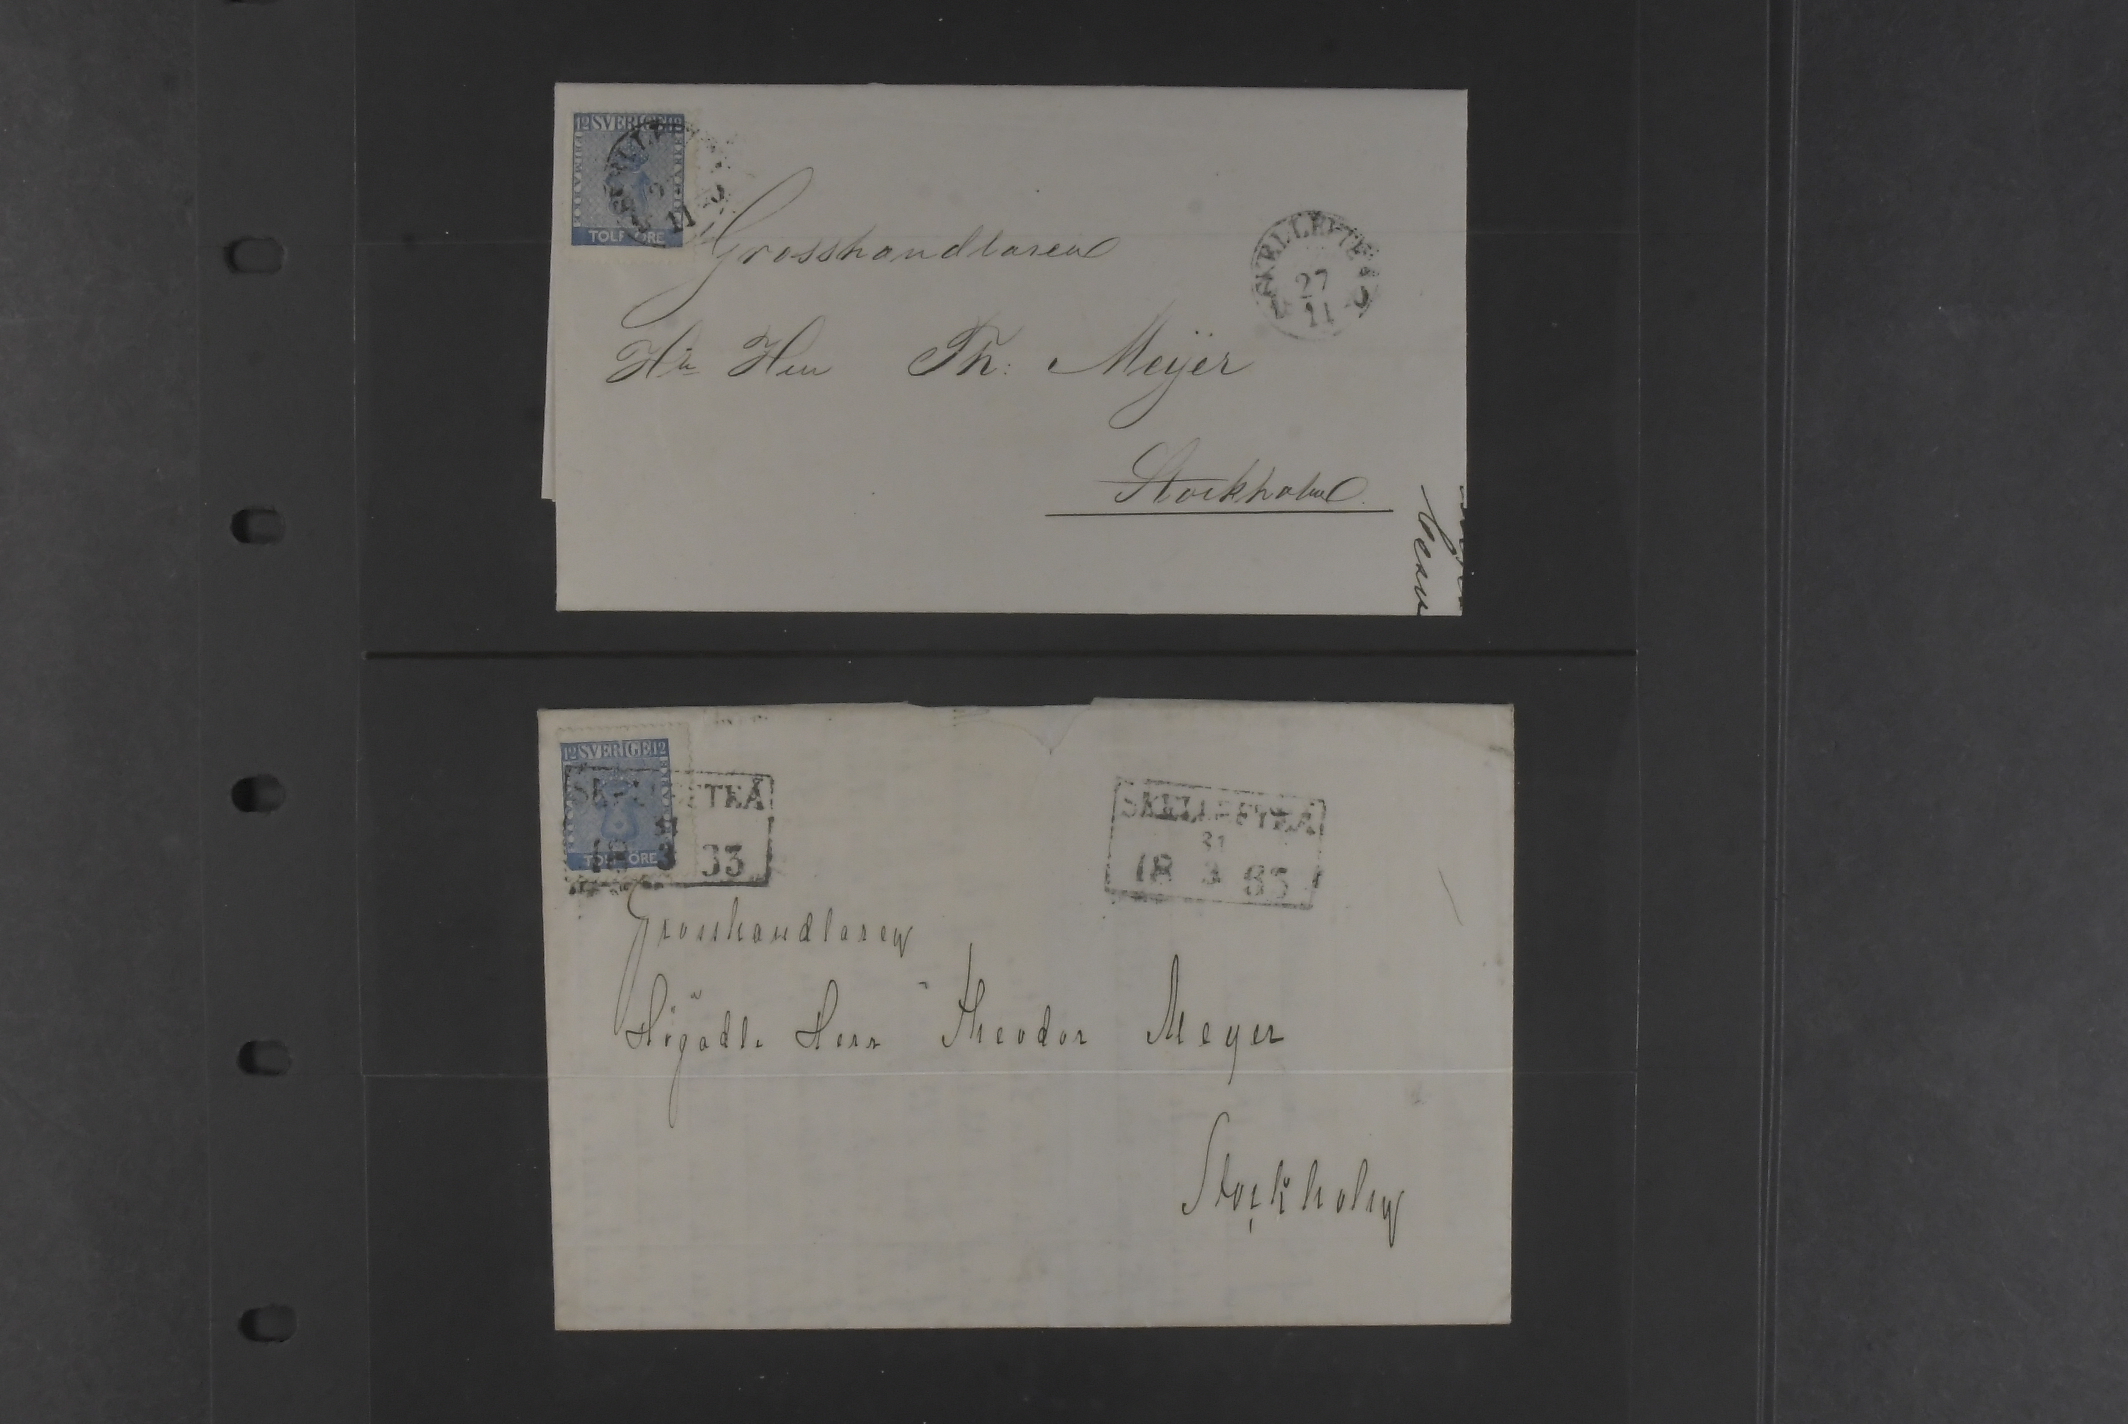 12 SVERIGE 12
TOLF ÖRE
11
Grosshandlaren
SKELLEFTEÅ
27
11
Th: Meÿer
Stockholm.
12 SVERIGE 12
TOLF ÖRE
SKELLEFTEÅ
18 3 63
SKELLEFTEÅ
31
18 3 63
Grosshandlaren
Högädle Herr Theodor Meyer
Stockholm